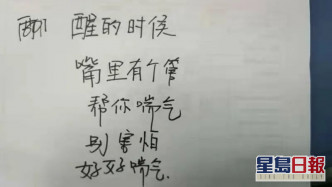 醒的时候
嘴里有个管
帮你喘气
别害怕
好好喘气.
星島日報